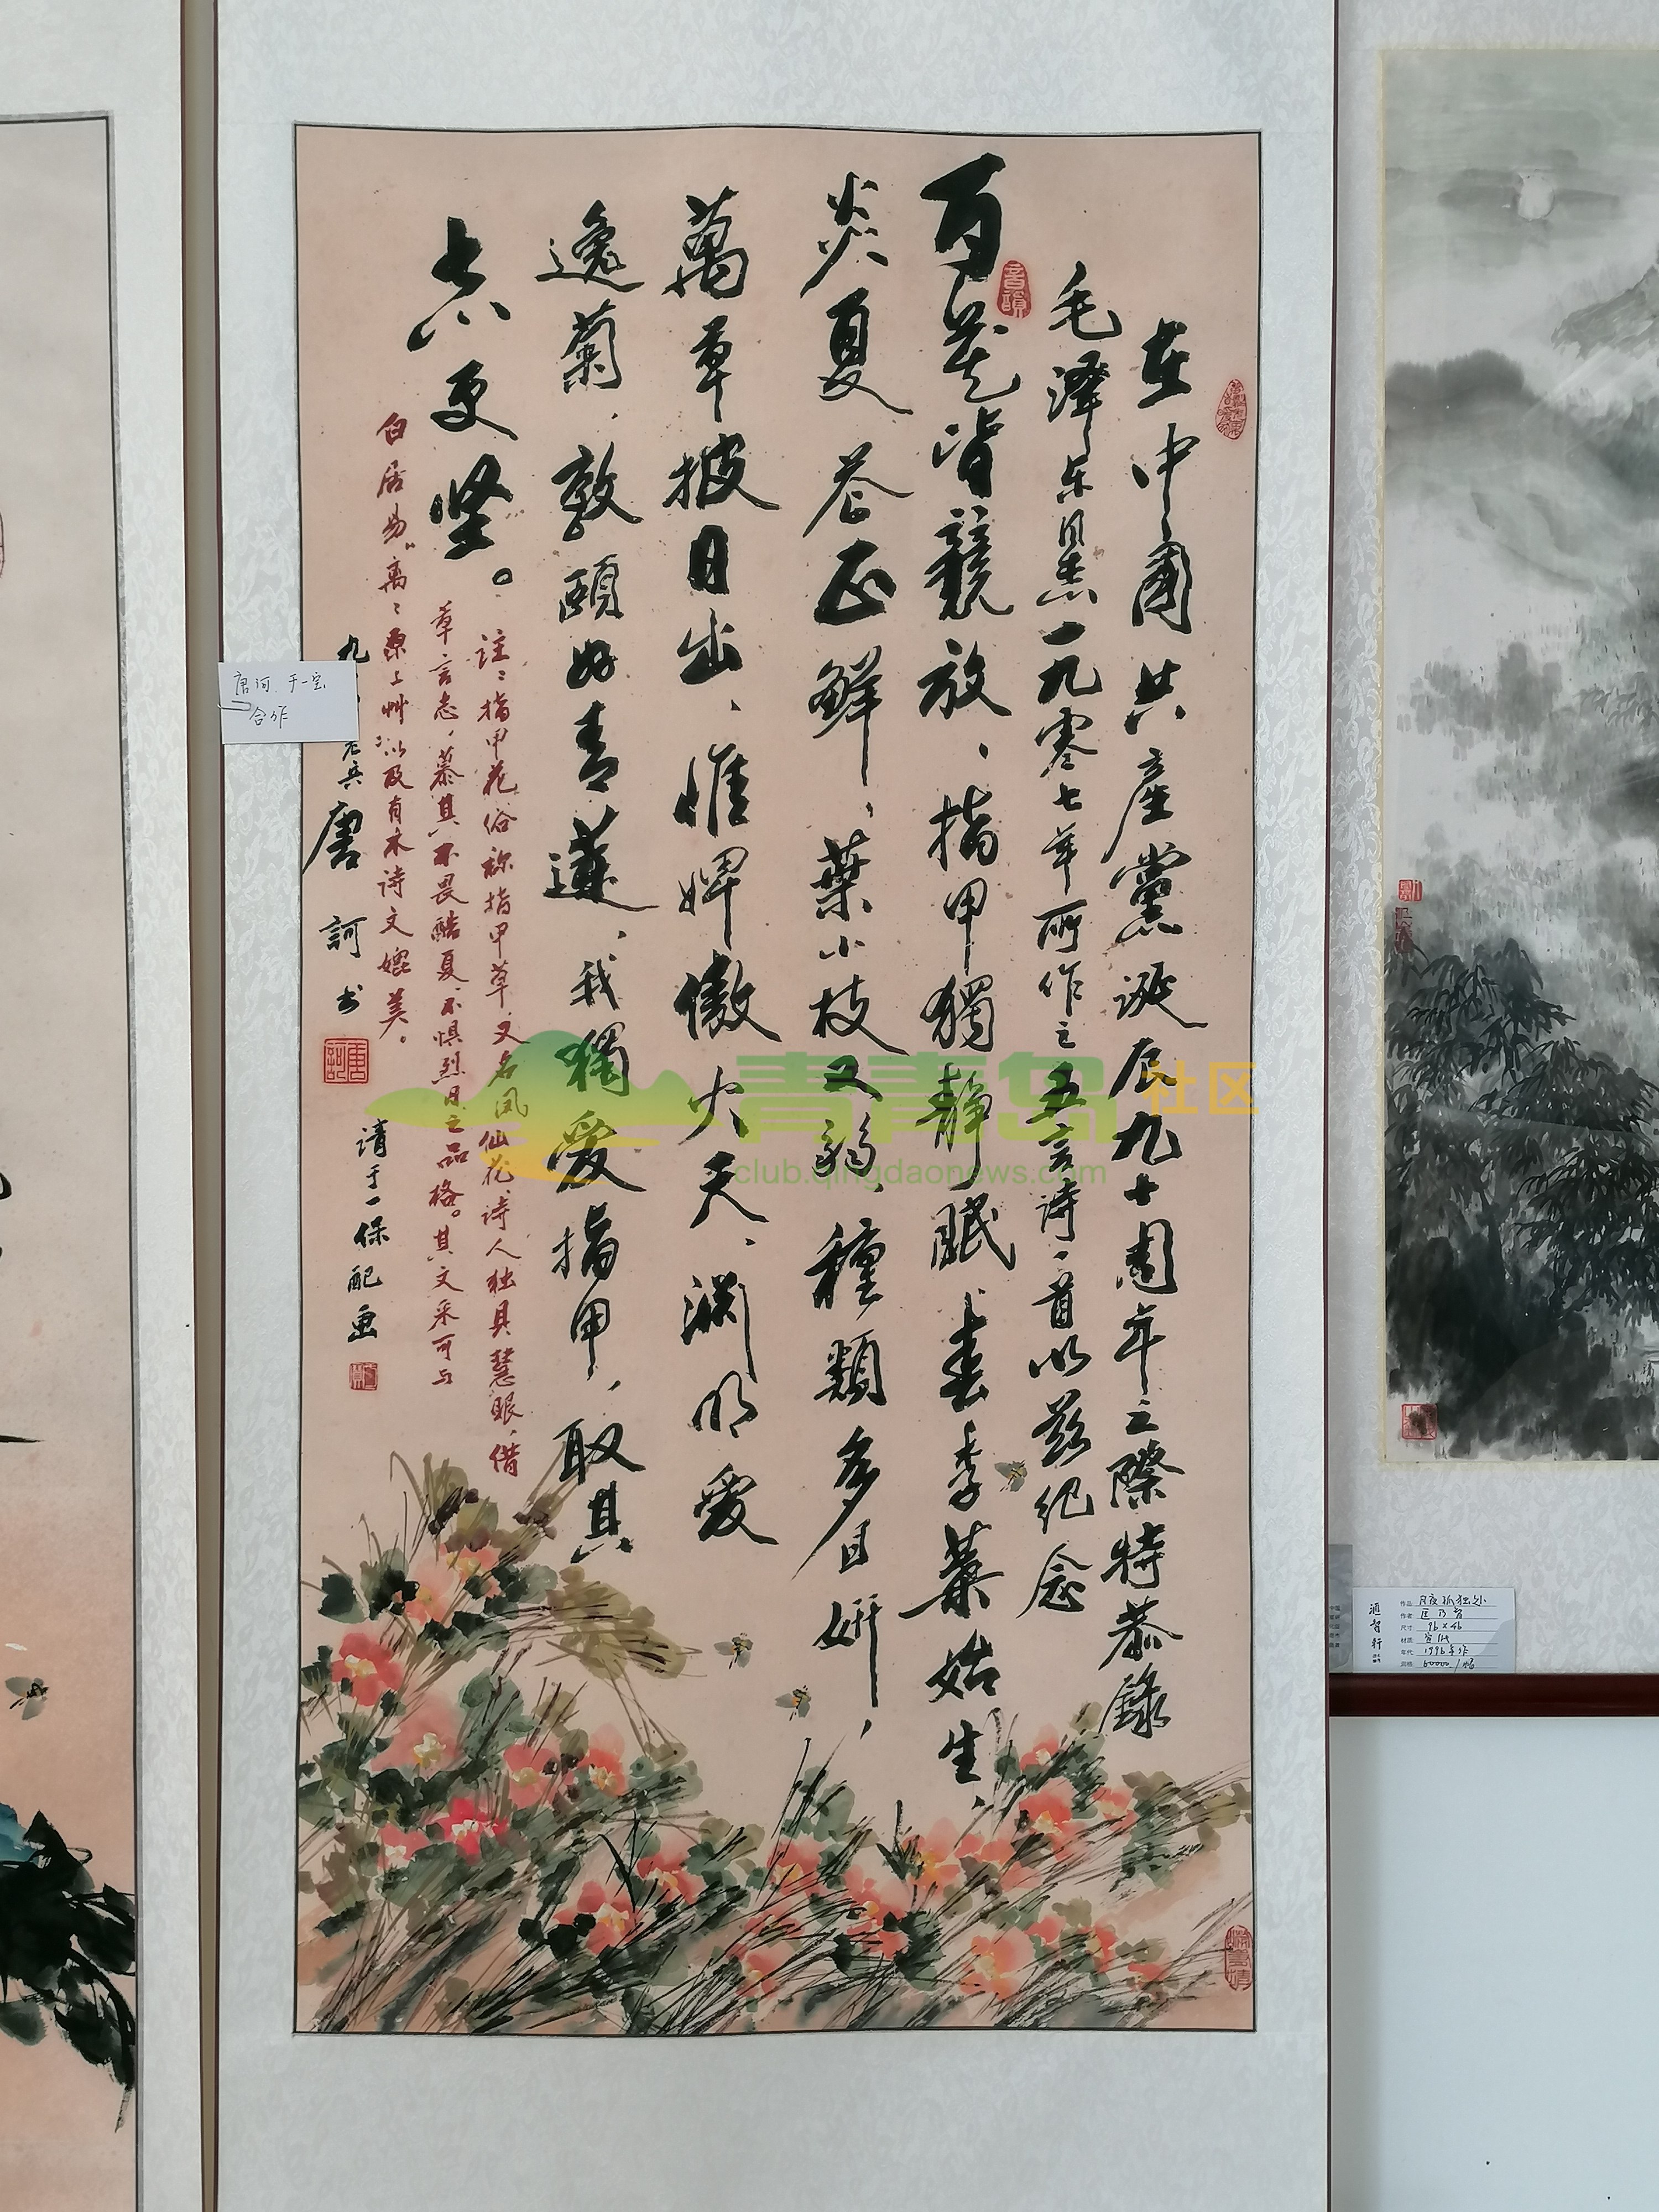 在中国共産黨诞辰九十周年之際特恭錄
毛澤东同志一九零七年所作之五言诗一首以兹纪念
百花皆競放、指甲獨静眠、春季叢始生、
炎夏花正鲜、葉小枝又弱、種類多且妍、
萬草披日出、惟婢傲火天、渊明爱
逸菊、敦頤好青蓮、我獨爱指甲、取其
志更坚。
註：指甲花俗称指甲草，又名凤仙花，诗人独具慧眼，借
草言志，慕其不畏酷夏、不惧烈日之品格。其文采可与
白居易“离离原上艸”以及有木诗文媲美。
九
老兵
唐訶书
请于一保配画
唐诃 于一宝
合作
青青岛社区
club.qingdaonews.com
作品 月夜孤独处
作者 匡乃智
尺寸 96×46
材质 宣纸
年代 1996年作
60000/幅